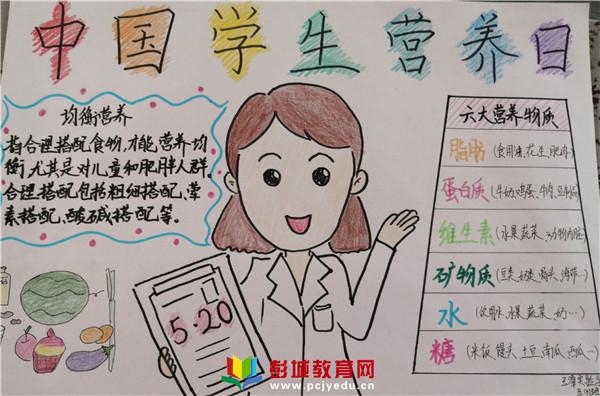 中国学生营养日
均衡营养
指合理搭配食物,才能营养均
衡,尤其是对儿童和肥胖人群。
合理搭配包括粗细搭配、荤
素搭配、酸碱搭配等。
六大营养物质
脂肪(食用油、花生、肥肉…)
蛋白质(牛奶、鸡蛋、牛肉、豆制品)
维生素(水果、蔬菜、动物内脏)
矿物质(豆类、奶类、海带…)
水(饮用水、水果、蔬菜、奶…)
糖(米饭、馒头、土豆、南瓜、西瓜…)
5·20
彭城教育网
www.pcjyedu.cn